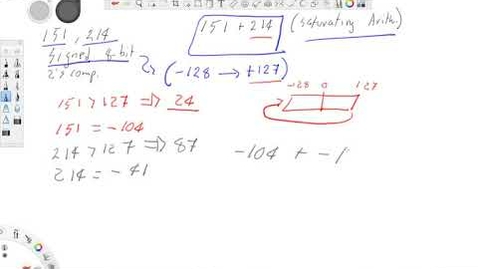 151, 214
Signed 8-bit
2's comp.
151 + 214 (saturating Arithm)
(-128 → +127)
-128 0 127
151 > 127 => 24
151 = -104
214 > 127 => 87
214 = -41
-104 + -1